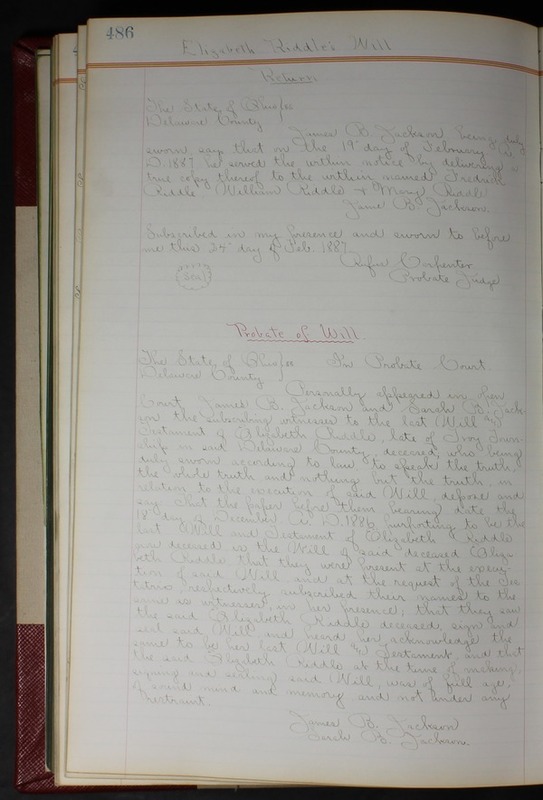 486
Elizabeth Riddle's Will
Return
The State of Ohio } ss
Delaware County
James B. Jackson being duly
sworn, says that on the 19" day of February A.
D. 1887 he served the within notice by delivering a
true copy thereof to the within named Fredrick
Riddle William Riddle & Mary Riddle
Jame B. Jackson.
Subscribed in my presence and sworn to before
me this 24" day of Feb. 1887
Rufus Carpenter
Probate Judge
Seal
Probate of Will.
The State of Ohio } ss In Probate Court.
Delaware County
Personally appeared in open
Court James B. Jackson and Sarah B. Jack-
son the subscribing witnesses to the last Will and
Testament of Elizabeth Riddle, late of Troy Town-
ship in said Delaware County, deceased, who being
duly sworn according to law to speak the truth,
the whole truth and nothing but the truth, in
relation to the execution of said Will, depose and
say, that the paper before them bearing date the
18" day of December A. D. 1886, purporting to be the
last Will and Testament of Elizabeth Riddle
now deceased is the Will of said deceased Eliza-
beth Riddle that they were present at the execu-
tion of said Will and at the request of the Tes-
tatrix respectively subscribed their names to the
same as witnesses, in her presence; that they saw
the said Elizabeth Riddle deceased, sign and
seal said Will and heard her acknowledge the
same to be her last Will & Testament, and that
the said Elizabeth Riddle at the time of making,
signing and sealing said Will, was of full age,
of sound mind and memory, and not under any
restraint.
James B. Jackson
Sarah B. Jackson.